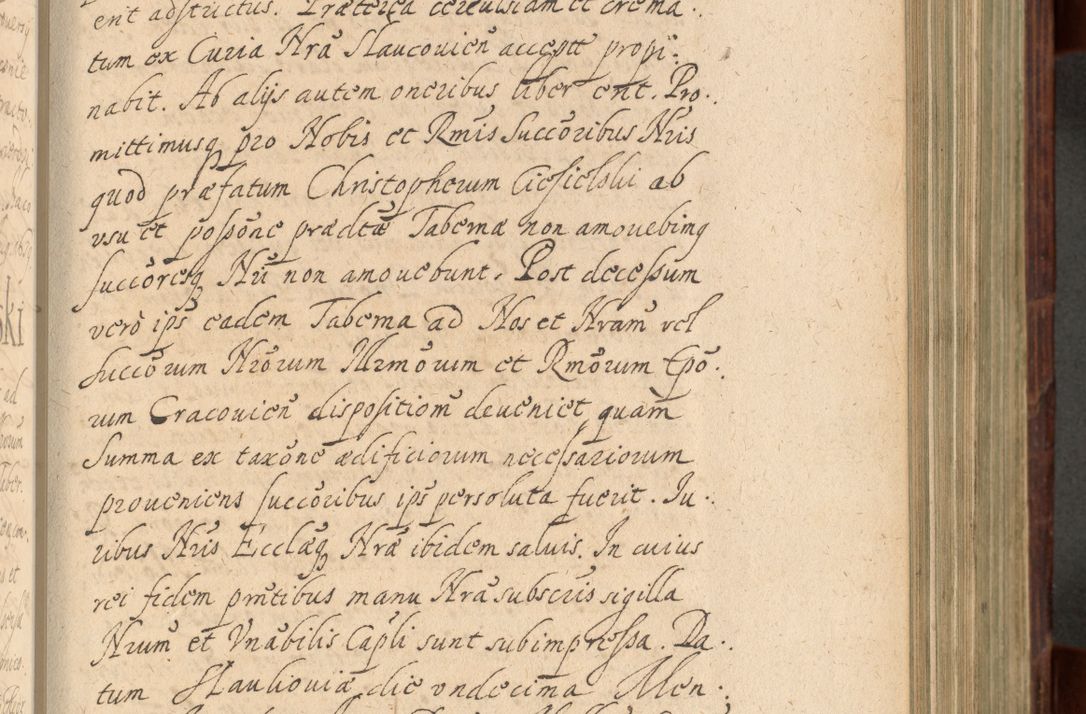 erit adstrictus. Præterea cereuisiam et crema-
tum ex Curia Nrã Slaucouien̄ accept propi-
nabit. Ab alijs autem oneribus liber erit. Pro-
mittimusq̨ pro Nobis et Rmis Succõribus Nris
quod præfatum Christopherum ab
vsu et poſsõne prædtæ Tabernæ non amouebimq
succõresq̨ Nri non amouebunt. Post deceſsum
verò ips̃ eadem Taberna ad Nos et Nram̃ vel
Succõrum Nrõrum Illrmõrum et Rmõrum Epõ-
rum Cracouien̄ dispositiom̃ deueniet, quam̃
Summa ex taxõne ædificiorum neceſsariorum
proueniens succõribus ips̃ persoluta fuerit. Iu-
ribus Nris Ecclæq̨ Nræ ibidem saluis. In cuius
rei fidem pñtibus manu Nrã subscris sigilla
Nrum̃ et Vnabilis Capli sunt subimpreſsa. Da-
tum Slaukouiæ die vndecima Men-